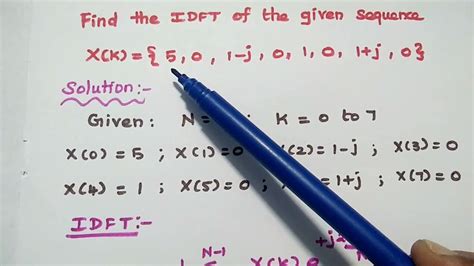 Find the IDFT of the given sequence
X(K) = { 5, 0, 1-j, 0, 1, 0, 1+j, 0}
Solution:-
Given: N= ; K = 0 to 7
X(0) = 5 ; X(1) = 0 X(2) = 1-j ; X(3) = 0
X(4) = 1 ; X(5) = 0 ; = 1+j ; X(7) = 0
IDFT:-
N-1